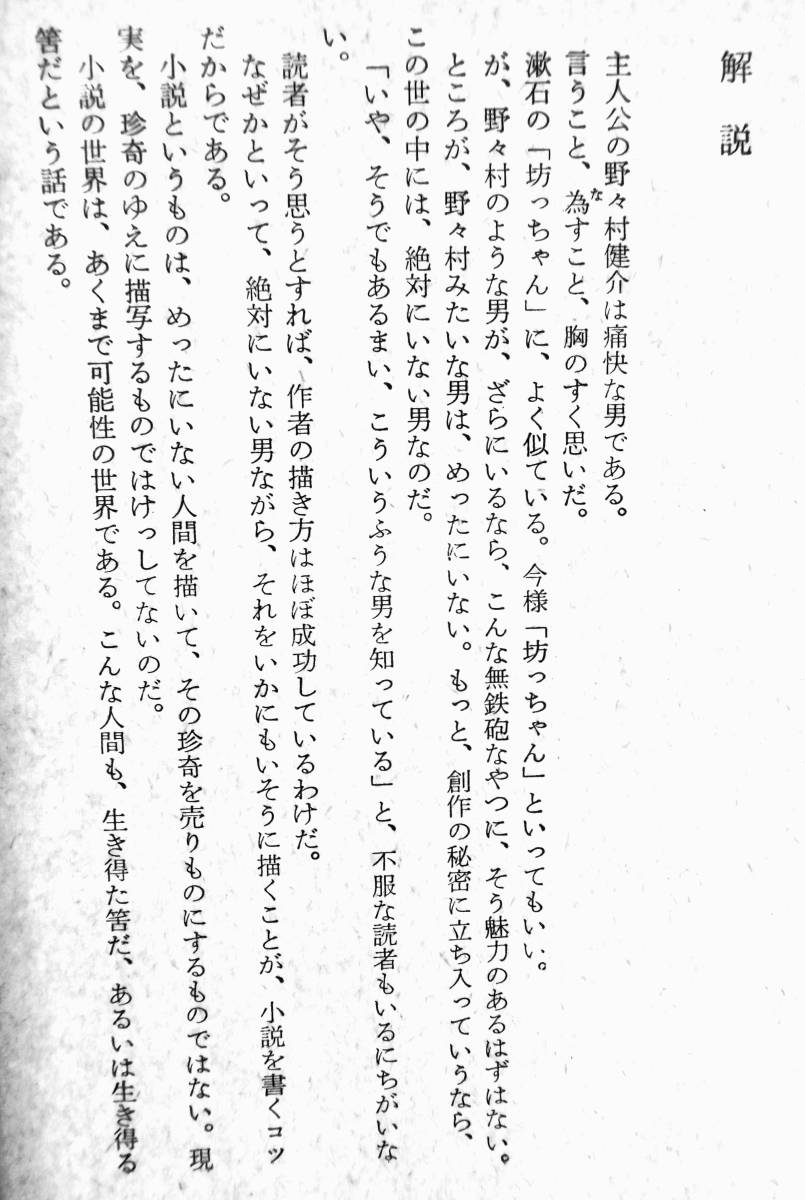 解説
主人公の野々村健介は痛快な男である。
言うこと、為すこと、胸のすく思いだ。
漱石の「坊っちゃん」に、よく似ている。今様「坊っちゃん」といってもいい。
が、野々村のような男が、ざらにいるなら、こんな無鉄砲なやつに、そう魅力のあるはずはない。
ところが、野々村みたいな男は、めったにいない。もっと、創作の秘密に立ち入っていうなら、
この世の中には、絶対にいない男なのだ。
「いや、そうでもあるまい、こういうふうな男を知っている」と、不服な読者もいるにちがいな
い。
読者がそう思うとすれば、作者の描き方はほぼ成功しているわけだ。
なぜかといって、絶対にいない男ながら、それをいかにもいそうに描くことが、小説を書くコッ
だからである。
小説というものは、めったにいない人間を描いて、その珍奇を売りものにするものではない。現
実を、珍奇のゆえに描写するものではけっしてないのだ。
小説の世界は、あくまで可能性の世界である。こんな人間も、生き得た筈だ、あるいは生き得る
筈だという話である。